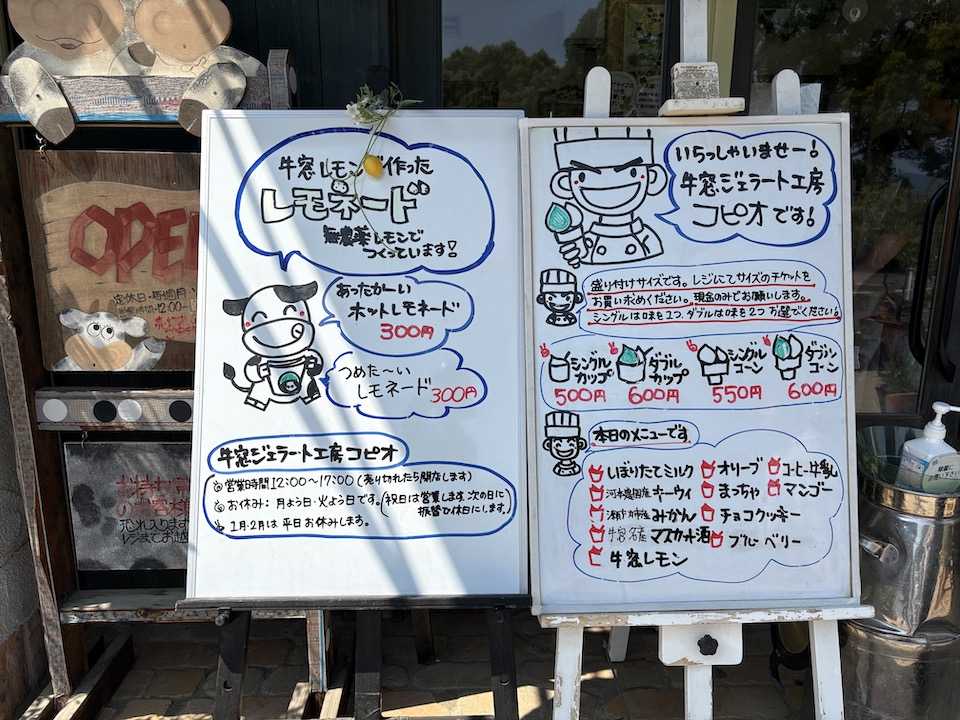 牛窓レモンで作った
レモネード
無農薬レモンで
つくっています!
あったか〜い
ホットレモネード
300円
つめた〜い
レモネード300円
牛窓ジェラート工房コピオ
営業時間12:00〜17:00(売り切れたら閉店します)
お休み:月よう日・火よう日です。(祝日は営業します。次の日に
振替で休日にします。)
1月・2月は平日お休みします。
いらっしゃいませー!
牛窓ジェラート工房
コピオです!
盛り付けサイズです。レジにてサイズのチケットを
お買い求めください。現金のみでお願いします。
シングルは味を1つ、ダブルは味を2つお選びください。
シングルカップ
500円
ダブルカップ
600円
シングルコーン
550円
ダブルコーン
600円
本日のメニューです
しぼりたてミルク
オリーブ
コーヒー牛乳
キーウィ
まっちゃ
マンゴー
みかん
チョコクッキー
牛窓名産マスカット酒
ブルーベリー
牛窓レモン
OPEN
定休日・毎週月
12:00〜
恐れ入ります
レジまでお越